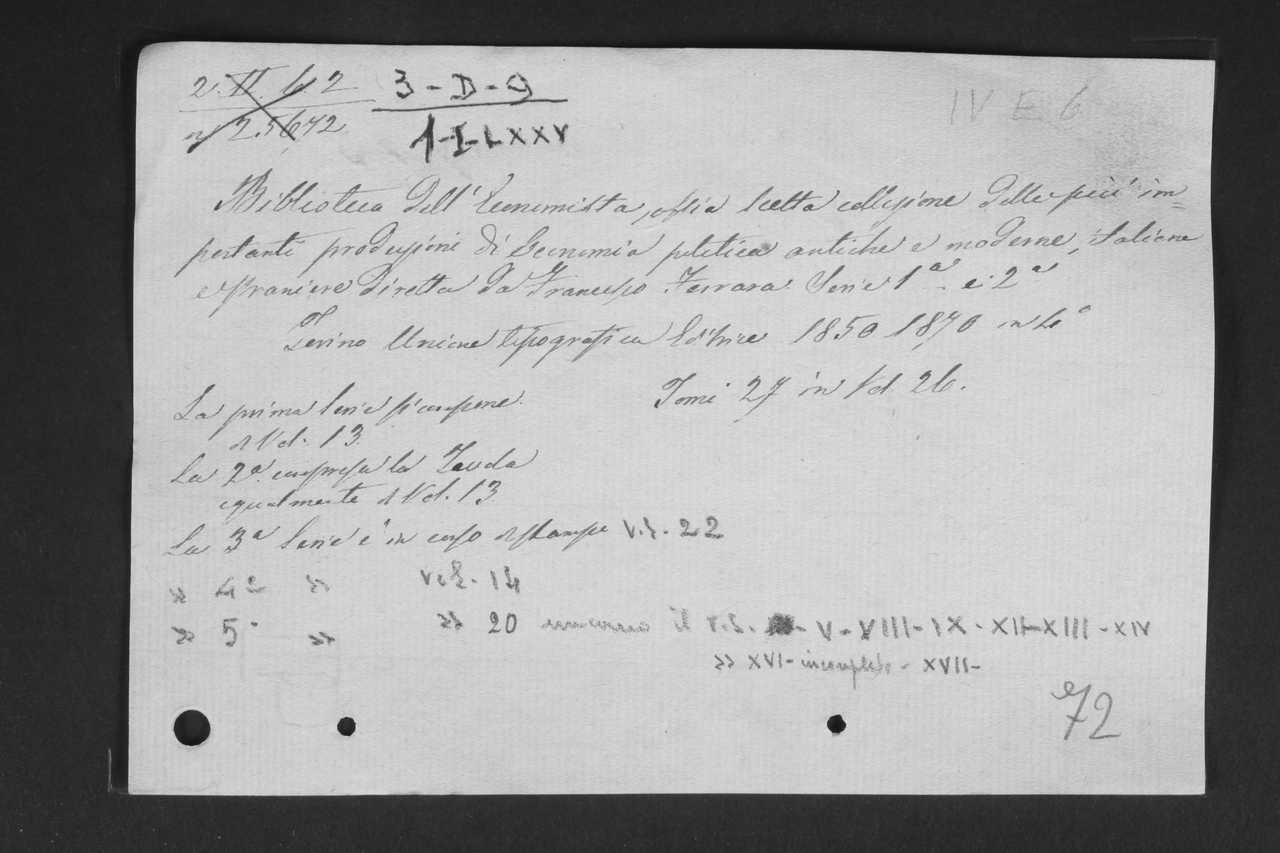 2. XI. 62
3 - D - 9
n 25672
1-I-LXXV
IV E 6
Biblioteca dell'Economista, ossia scelta collezione delle più im=
portanti produzioni di Economia politica antiche e moderne, italiane
e straniere diretta da Francesco Ferrara Serie 1a e 2a
Torino Unione tipografica Editrice 1850 1870 in 4°
Tomi 27 in Vol. 26.
La prima Serie si compone
di Vol. 13
La 2a compresa la
egualmente di Vol. 13
La 3a Serie è in corso di stampa Vol. 22
» 4a » Vol. 14
» 5a » » 20 mancano il Vol. - V - VIII - XI - XII - XIII - XIV
» XVI - incompleto - XVII -
72